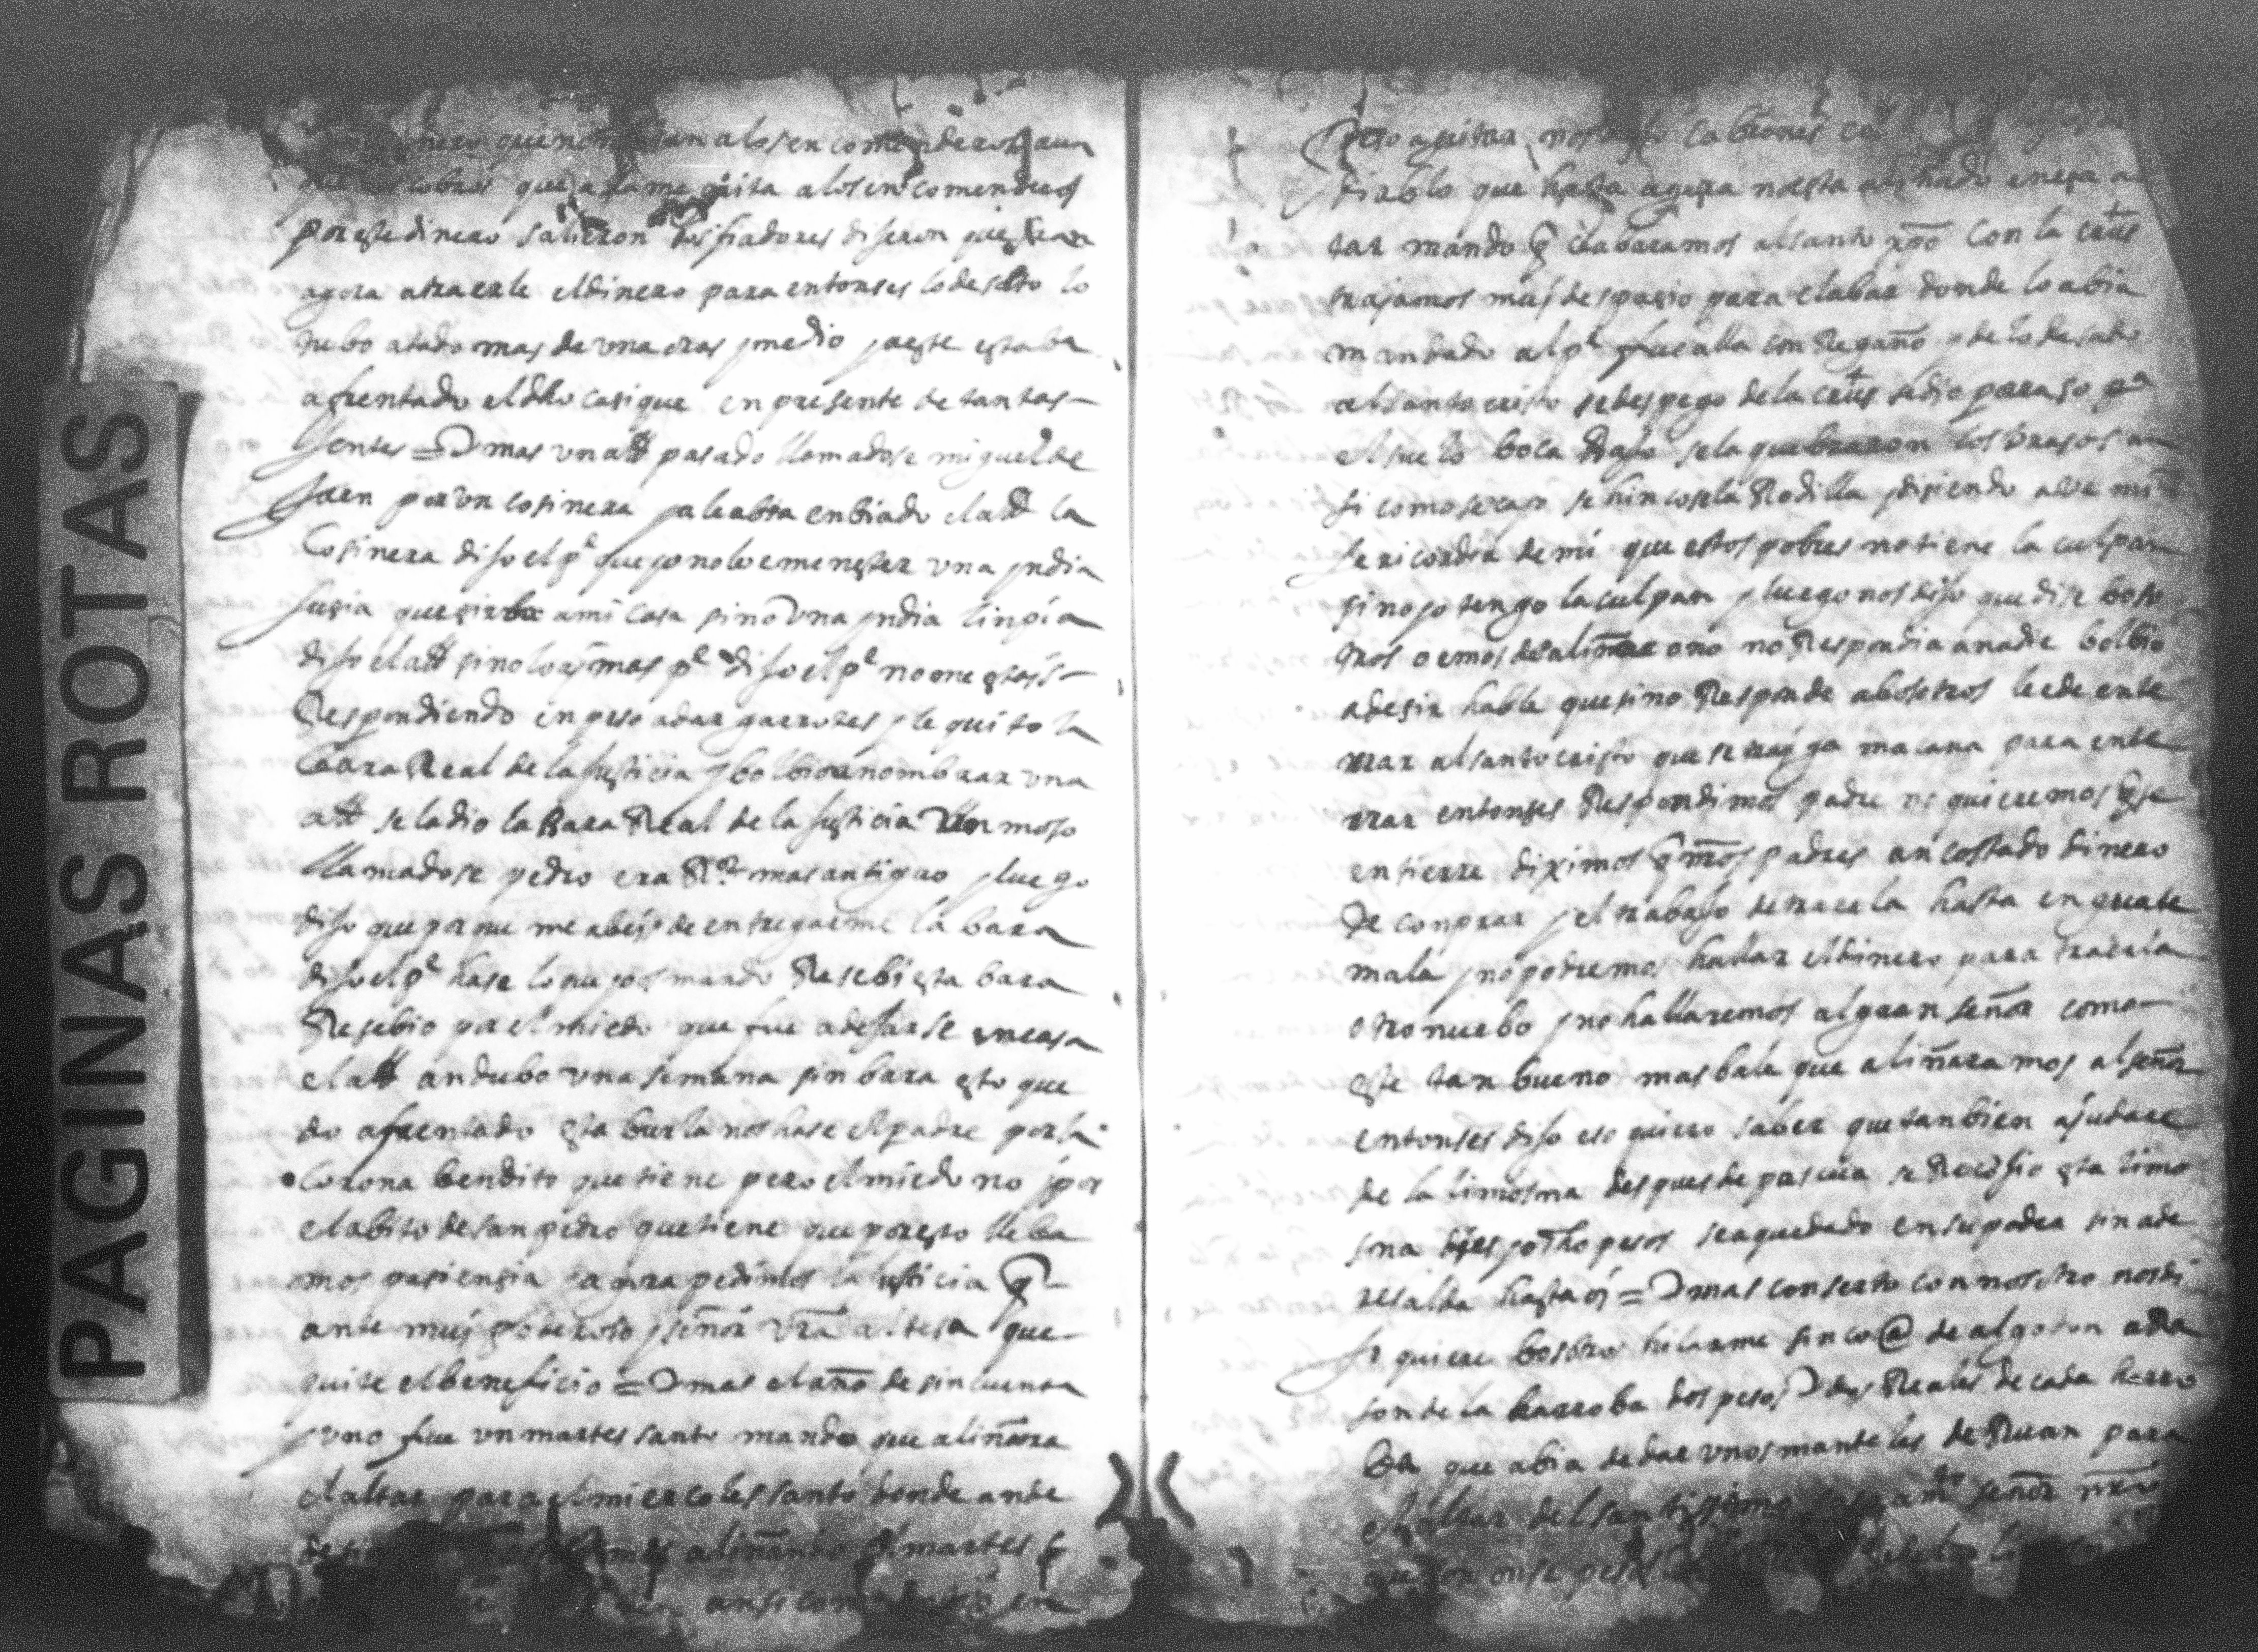 PAGINAS ROTAS
nero que no alos encomenderos aun
cobros que quita a los encomenderos
por este dinero salieron dos fiadores diseron que
agora a traerle el dinero para entonses lo desato lo
tubo atado mas de una oras y medio y a este estaba
afrentado el dho casique en presente de tantas
Gentes = mas un alld pasado llamadose miguel de
Jaen por un cosinera ya le abia enbiado el alld la
Cosinera diso el pe que yo no lo e menester una yndia
susia que sirba a mi casa sino una yndia linpia
diso el alld sino lo ay mas pe diso el pe no me estais
Respondiendo enpeso a dar garrotes y le quito la
baara Real de la Justicia y bolbio a nombrar una
alld se la dio la Bara Real de la Justicia moso
llamadose pedro era Ror mas antiguo y luego
diso que por que me abeis de entregarme la bara
diso el pe hase lo que yo os mando Resebi esta bara
Resebio por el miedo que fue a desarse en casa
el alld andubo una semana sin bara esto que
do afrentado esta burla nos hase el padre por la
Corona bendito que tiene pero el miedo no y por
el abito de san pedro que tiene que por esto lleba
mos pasiensia y agora pedimos la justicia q
ante muy poderoso señor vra altesa que
quite el beneficio = mas el año de sincuenta
y uno fue un martes santo mando que aliñara
el altar para el miercoles santo donde ande
aliñando el martes
ansi como
pero a quitar cabrones
diablo que hasta agora no esta aliñado
tar mando q clabaramos al santo xpo Con la crus
trajamos muy despasio para clabar donde lo abia
mandado al pe fue alla con Regaño y de lo desado
al santo cristo se despego de la crus se dio
el suelo boca Baso se la quebraron los brasos an
si como se cayo se hinco se la Rodilla y disiendo alle mi
sericordia de mi que estos pobres no tiene la culpan
sino yo tengo la culpan y luego nos diso que dise boso
tros o emos de aliñar o no no Respondia a nadie bolbio
a desir hable que si no Responde a bosetros le e de ente
rrar al santo cristo que se trayga macana para ente
rrar entonses Respondimos padre no quieremos q se
entierre diximos q nros padres an costado dinero
de conprar y el trabajo de traerla hasta en guate
mala y no podremos hallar el dinero para traerla
otro nuebo y no hallaremos al gran señor como
este tan bueno mas bale que aliñaramos al señor
entonses diso eso quiero saber que tanbien ajudare
de la limosna despues de pascua se Recojio esta limo
sna dies y ocho pesos se a quedado en su poder sin ade
resalla hasta oy = mas conserto con nosotro nos di
so quiere bosotro hilarme sinco @ de algodon a Ra
son de la harroba dos pesos dos Reales de cada harro
ba que abia de dar unos manteles de Ruan para
el altar del santissimo sacramto señor nro
que son onse pesos